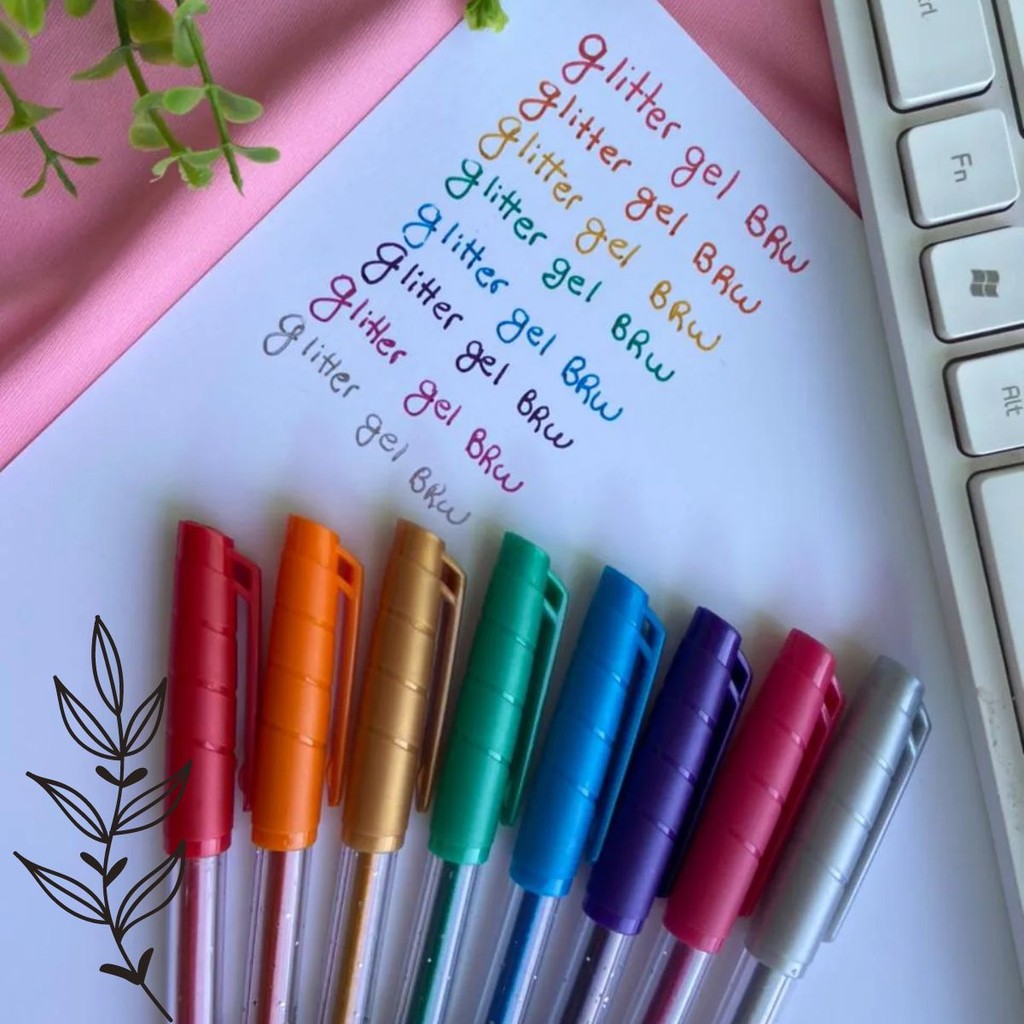 glitter gel BRW
glitter gel BRW
glitter gel BRW
glitter gel BRW
glitter gel BRW
glitter gel BRW
glitter gel BRW
glitter gel BRW
Fn
Alt